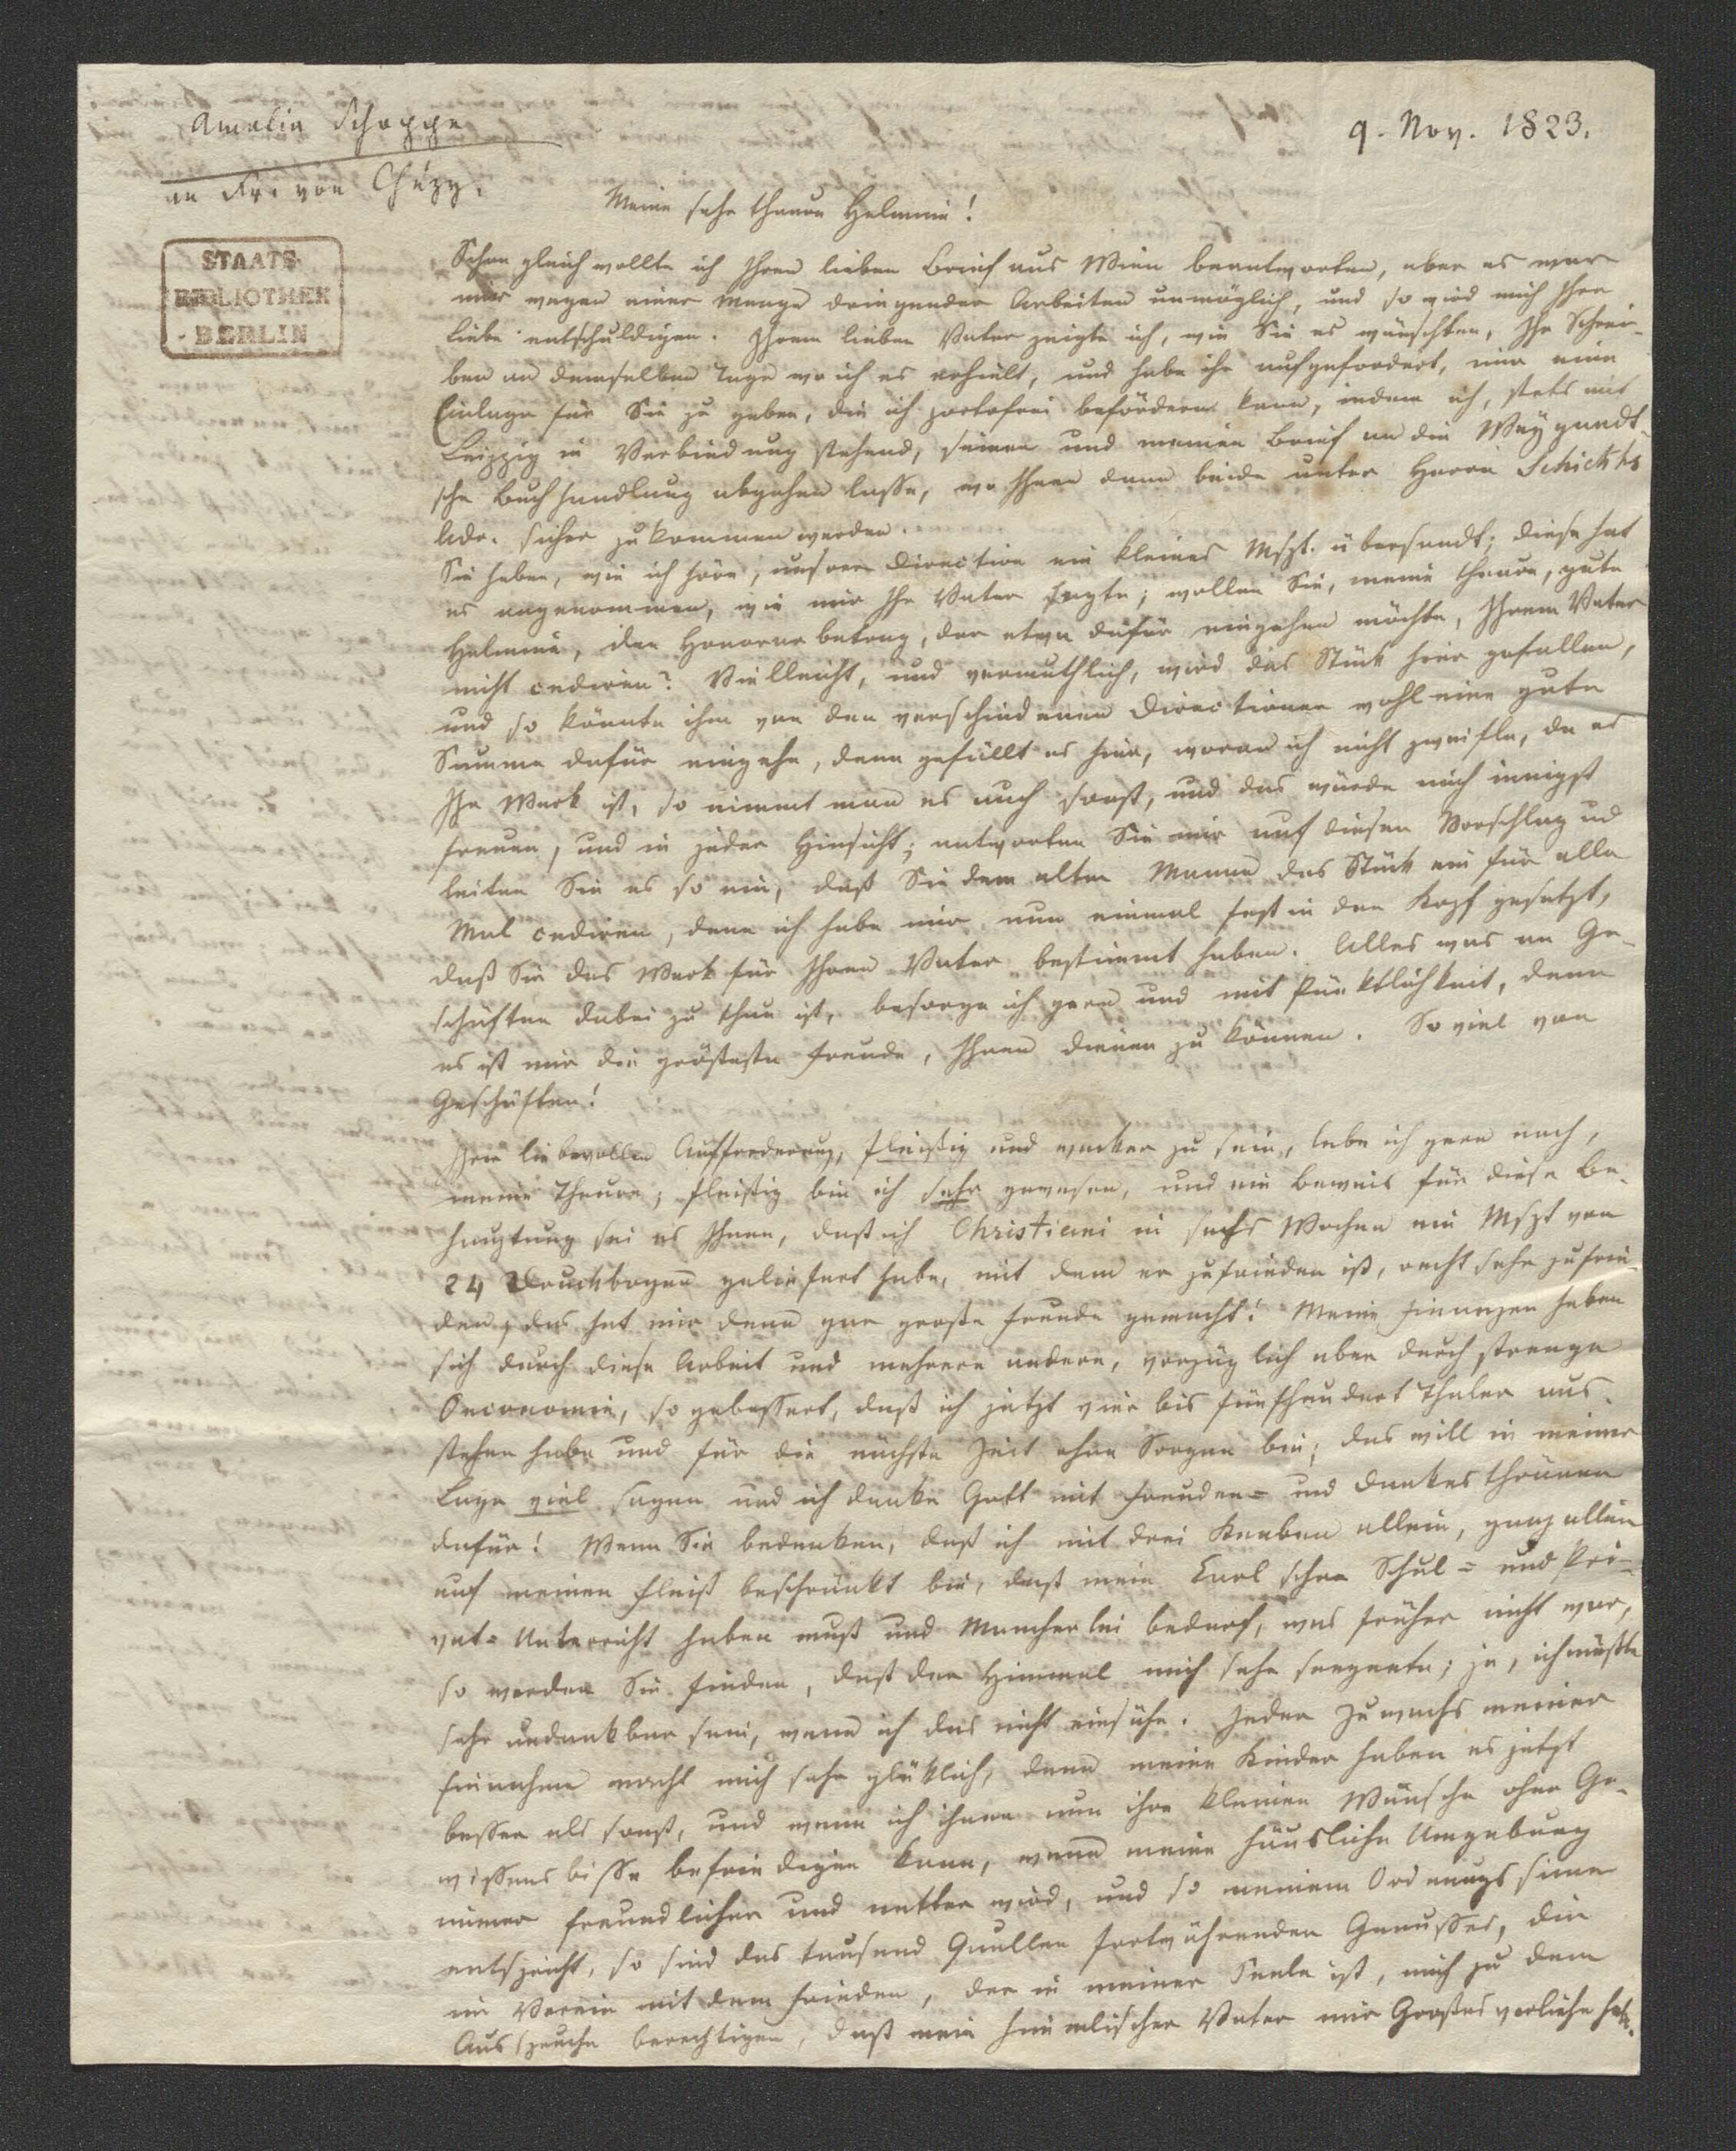 Amalia Schoppe
an Fr. von Chézy.
9. Nov. 1823.
STAATS
BIBLIOTHEK
BERLIN
Meine sehr theure Helmina!
Schon gleich wollte ich Ihren lieben Brief aus Wien beantworten, aber es war
mir wegen einer Menge dringender Arbeiten unmöglich, und so wird mich Ihre
Liebe entschuldigen. Ihrem lieben Vater zeigte ich, wie Sie es wünschten, Ihr Schrei-
ben an demselben Tage wo ich es erhielt, und habe ihn aufgefordert, mir eine
Einlage für Sie zu geben, die ich portofrei befördern kann, indem ich, stets mit
Leipzig in Verbindung stehend, seinen und meinen Brief an die Weygandt-
sche Buchhandlung abgehen lasse, wo Ihnen dann beide unter Herrn Schickhs
Adr. sicher zukommen werden.
Sie haben, wie ich höre, unserer Direction ein kleines Mspt. übersandt; diese hat
es angenommen, wie mir Ihr Vater sagte; wollen Sie, meine theure, gute
Helmina, den Honorarbetrag, der etwa dafür eingehen möchte, Ihrem Vater
nicht cediren? Vielleicht, und vermuthlich, wird das Stück hier gefallen,
und so könnte ihm von den verschiedenen Directionen wohl eine gute
Summe dafür eingehn, denn gefällt es hier, woran ich nicht zweifle, da es
Ihr Werk ist, so nimmt man es auch sonst, und das würde mich innigst
freuen, und in jeder Hinsicht; antworten Sie mir auf diesen Vorschlag ud
leiten Sie es so ein, daß Sie dem alten Manne das Stück ein für alle
Mal cediren, denn ich habe mir nun einmal fest in den Kopf gesetzt,
daß Sie das Werk für Ihren Vater bestimmt haben. Alles was an Ge-
schäften dabei zu thun ist, besorge ich gern und mit Pünktlichkeit, denn
es ist mir die größeste Freude, Ihnen dienen zu können. So viel von
Geschäften!
Ihrer liebevollen Aufforderung, fleißig und wacker zu sein, lebe ich gern nach,
meine Theure; fleißig bin ich sehr gewesen, und ein Beweis für diese Be-
hauptung sei es Ihnen, daß ich Christiani in sechs Wochen ein Mspt von
24 Druckbogen geliefert habe, mit dem er zufrieden ist, recht sehr zufrie-
den, das hat mir denn gar große Freude gemacht! Meine Finanzen haben
sich durch diese Arbeit und mehrere andere, vorzüglich aber durch strenge
Oeconomie, so gebessert, daß ich jetzt vier bis fünfhundert Thaler aus-
stehen habe und für die nächste Zeit ohne Sorgen bin; das will in meiner
Lage viel sagen und ich danke Gott mit Freuden= und Dankesthränen
dafür! Wenn Sie bedenken, daß ich mit drei Knaben allein, ganz allein
auf meinen Fleiß beschränkt bin, daß mein Carl schon Schul= und Pri-
vat= Unterricht haben muß und Mancherlei bedarf, was früher nicht war,
so werden Sie finden, daß der Himmel mich sehr seegnete; ja, ich müßte
sehr undankbar sein, wenn ich das nicht einsähe. Jeder Zuwachs meiner
Einnahme macht mich sehr glücklich, denn meine Kinder haben es jetzt
besser als sonst, und wenn ich ihnen nun ihre kleinen Wünsche ohne Ge-
wissensbisse befriedigen kann, wenn meine häusliche Umgebung
immer freundlicher und netter wird, und so meinem Ordnungssinne
entspricht, so sind das tausend Quellen fortwährenden Genusses, die
im Verein mit dem Frieden, der in meiner Seele ist, mich zu dem
Ausspruche berechtigen, daß mein himmlischer Vater mir Großes verliehn hat.